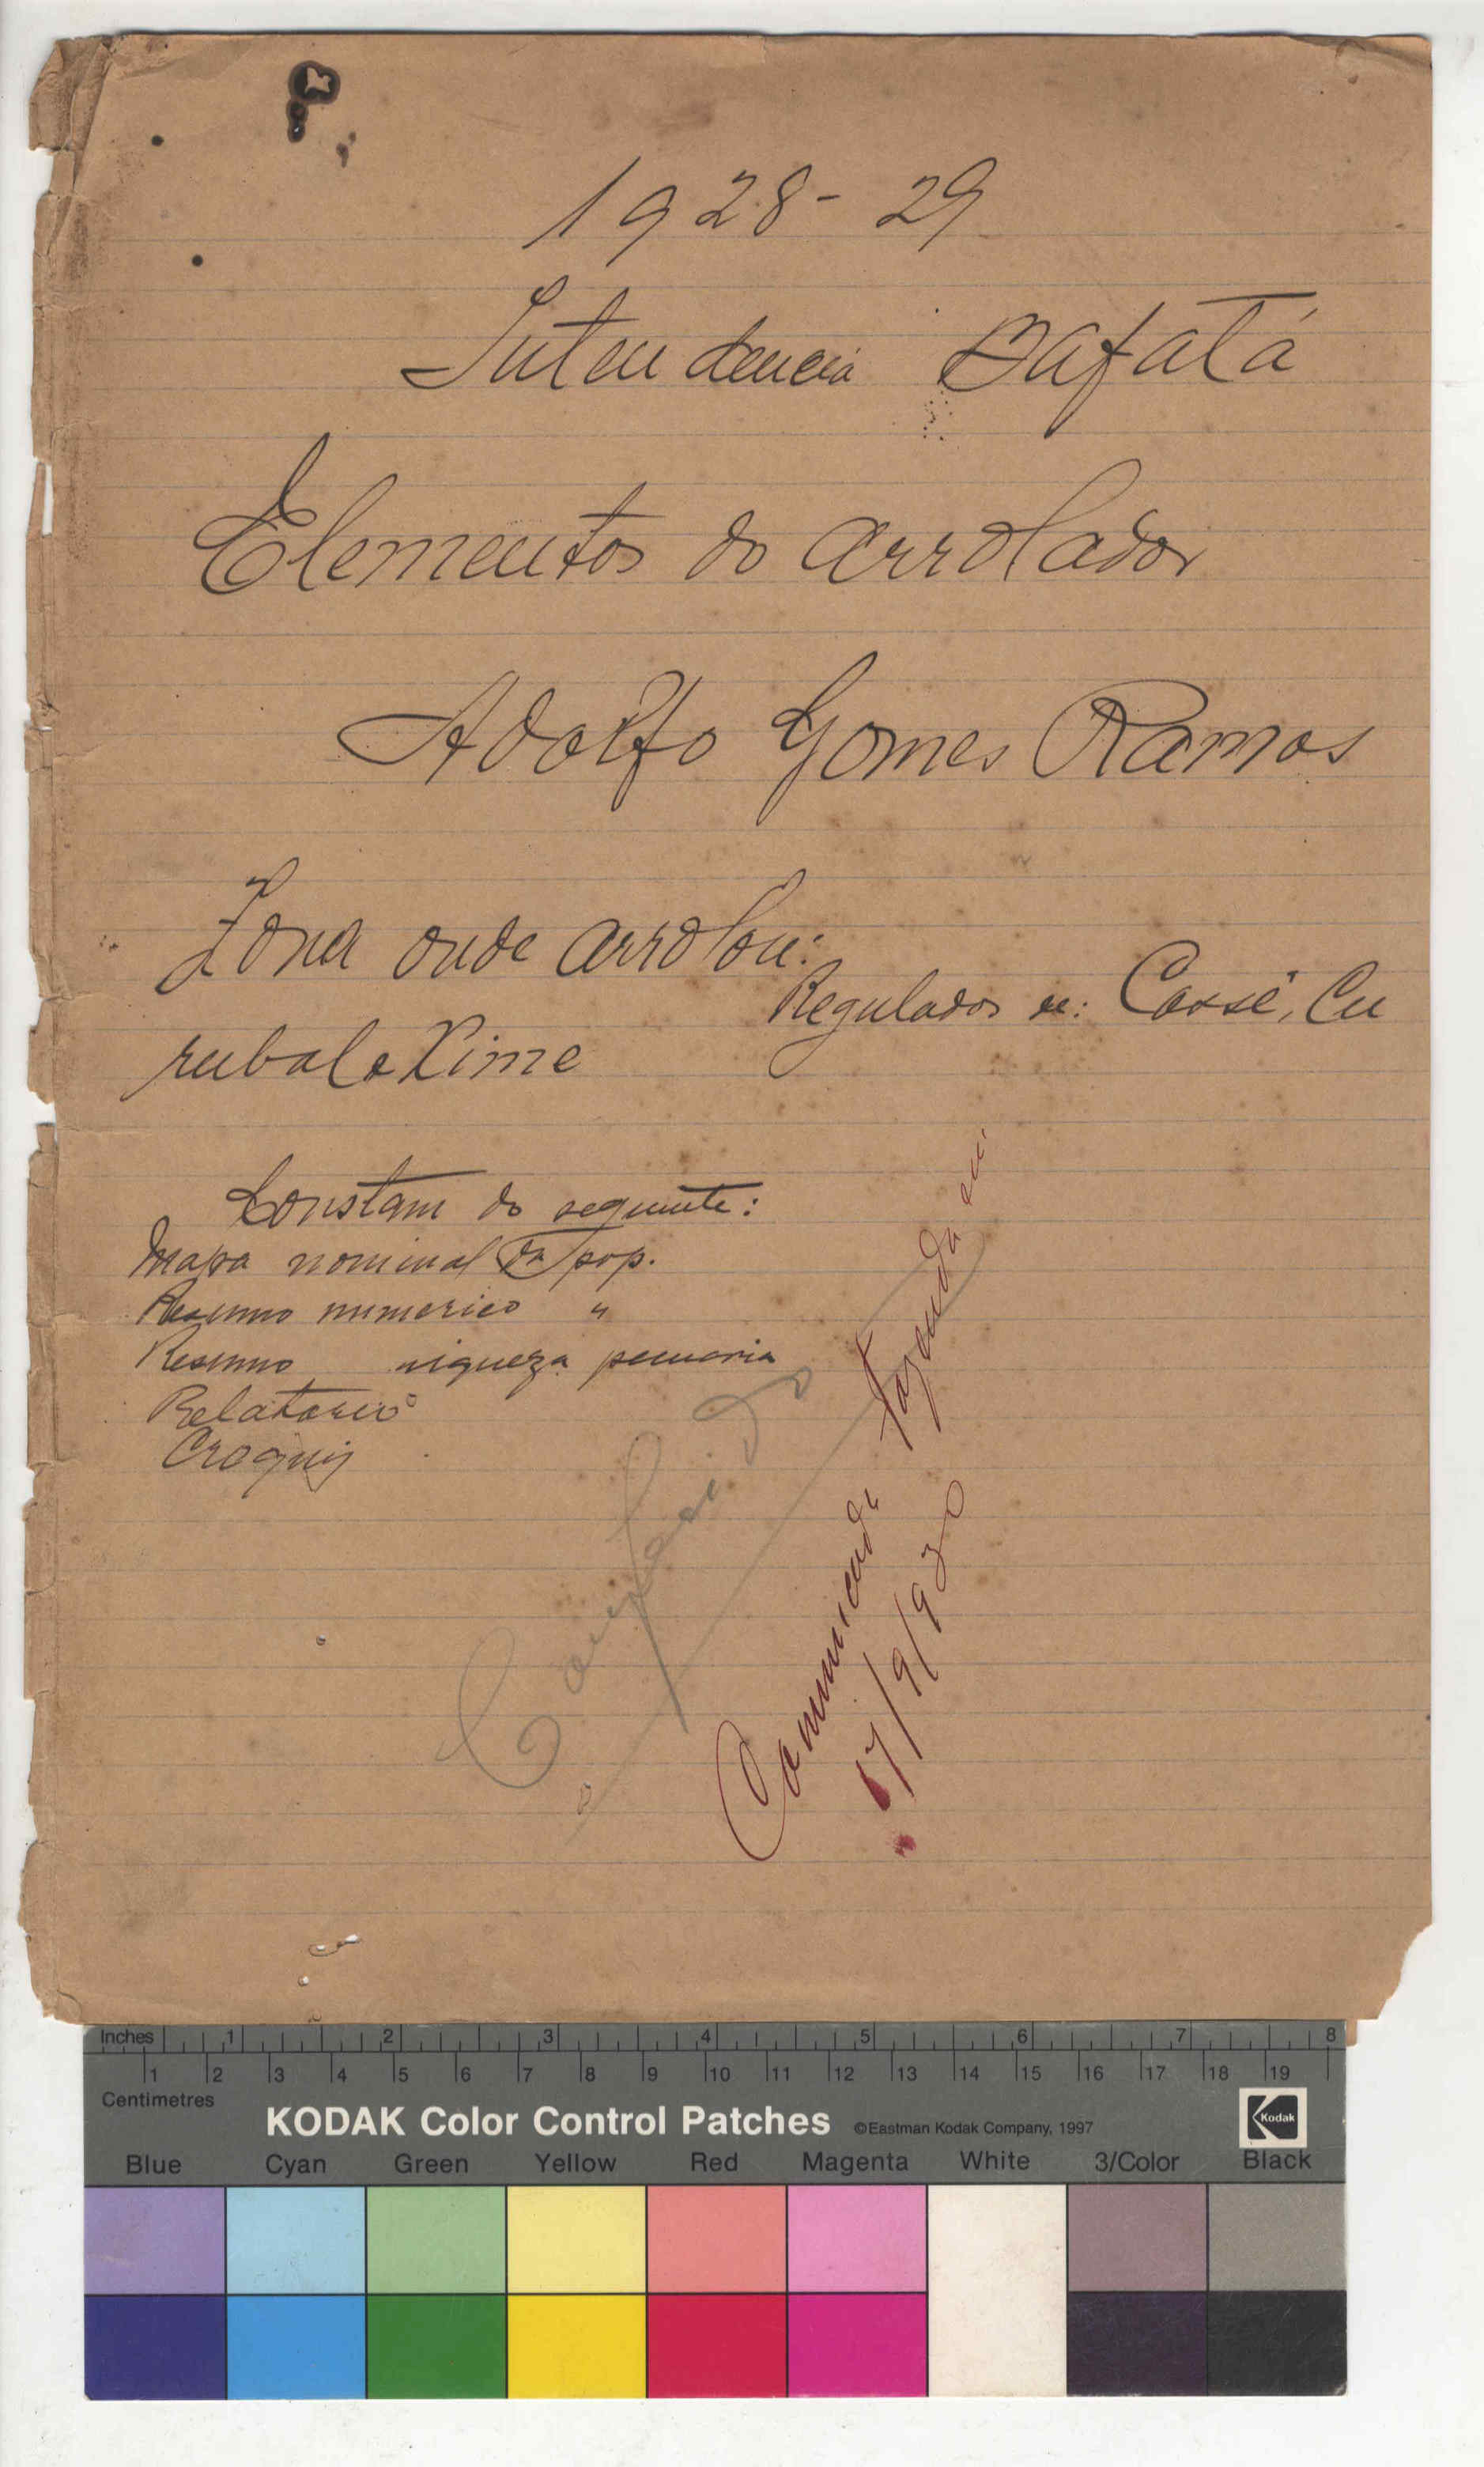 1928-29
Intendencia Bafatá
Elementos do arrolador
Adolfo Gomes Ramos
Zona onde arrolou:
Regulados de: Cossé, Cu
rubal e Xime
Constam do seguinte:
Mapa nominal da pop.
Resumo numerico "
Resumo riqueza pecuaria
Relatorio
Croquis
Conferido
Communicado Fazenda em
17/9/930
Inches 1 2 3 4 5 6 7 8
1 2 3 4 5 6 7 8 9 10 11 12 13 14 15 16 17 18 19
Centimetres
KODAK Color Control Patches ©Eastman Kodak Company, 1997 Kodak
Blue Cyan Green Yellow Red Magenta White 3/Color Black